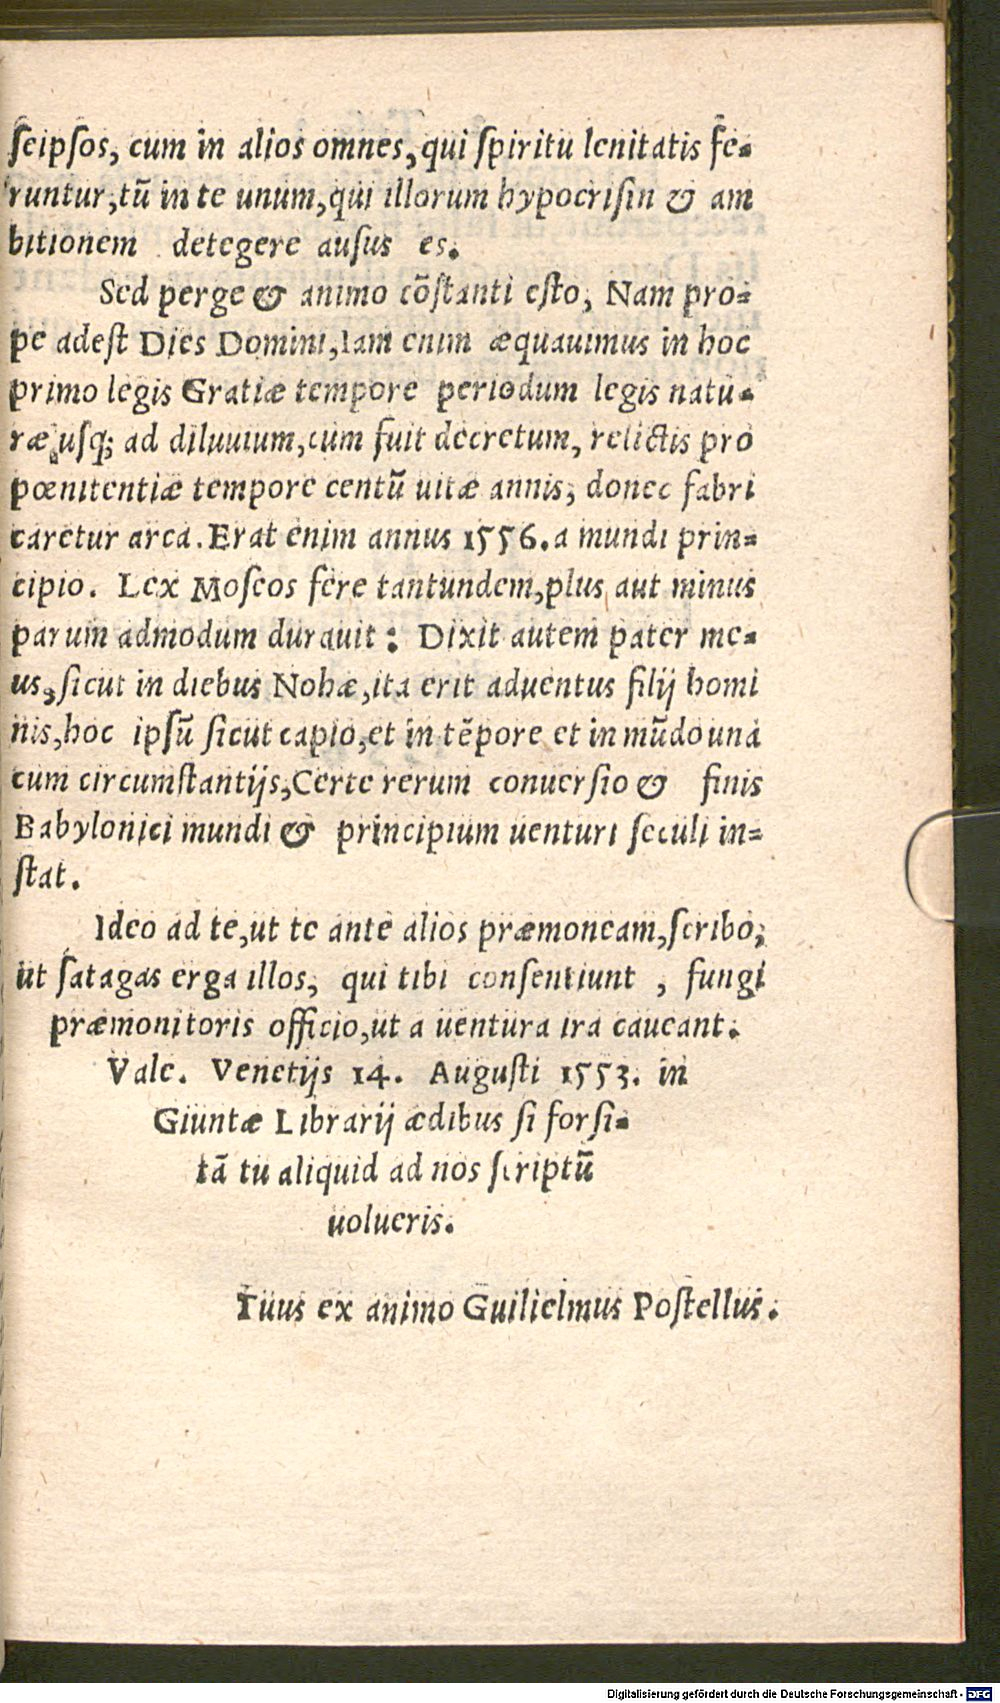 ſeipſos, cum in alios omnes, qui ſpiritu lenitatis fe-
runtur, tū in te unum, qui illorum hypocriſin & am
bitionem detegere auſus es.
Sed perge & animo cōſtanti eſto, Nam pro-
pe adeſt Dies Domini, Iam enim æquauimus in hoc
primo legis Gratiæ tempore periodum legis natu-
ræ uſq; ad diluuium, cum fuit decretum, relictis pro
pœnitentiæ tempore centū uitæ annis, donec fabri
caretur arca. Erat enim annus 1556. a mundi prin-
cipio. Lex Moſeos fere tantundem, plus aut minus
parum admodum durauit: Dixit autem pater me-
us, ſicut in diebus Nohæ, ita erit aduentus filij homi
nis, hoc ipſū ſicut capio, et in tēpore et in mūdo una
cum circumſtantijs, Certe rerum conuerſio & finis
Babylonici mundi & principium uenturi ſeculi in-
ſtat.
Ideo ad te, ut te ante alios præmoneam, ſcribo,
ut ſatagas erga illos, qui tibi conſentiunt, fungi
præmonitoris officio, ut a uentura ira caueant.
Vale. Venetijs 14. Auguſti 1553. in
Giuntæ Librarij ædibus ſi forſi-
tā tu aliquid ad nos ſcriptū
uolueris.
Tuus ex animo Guilielmus Poſtellus.
Digitalisierung gefördert durch die Deutsche Forschungsgemeinschaft - DFG